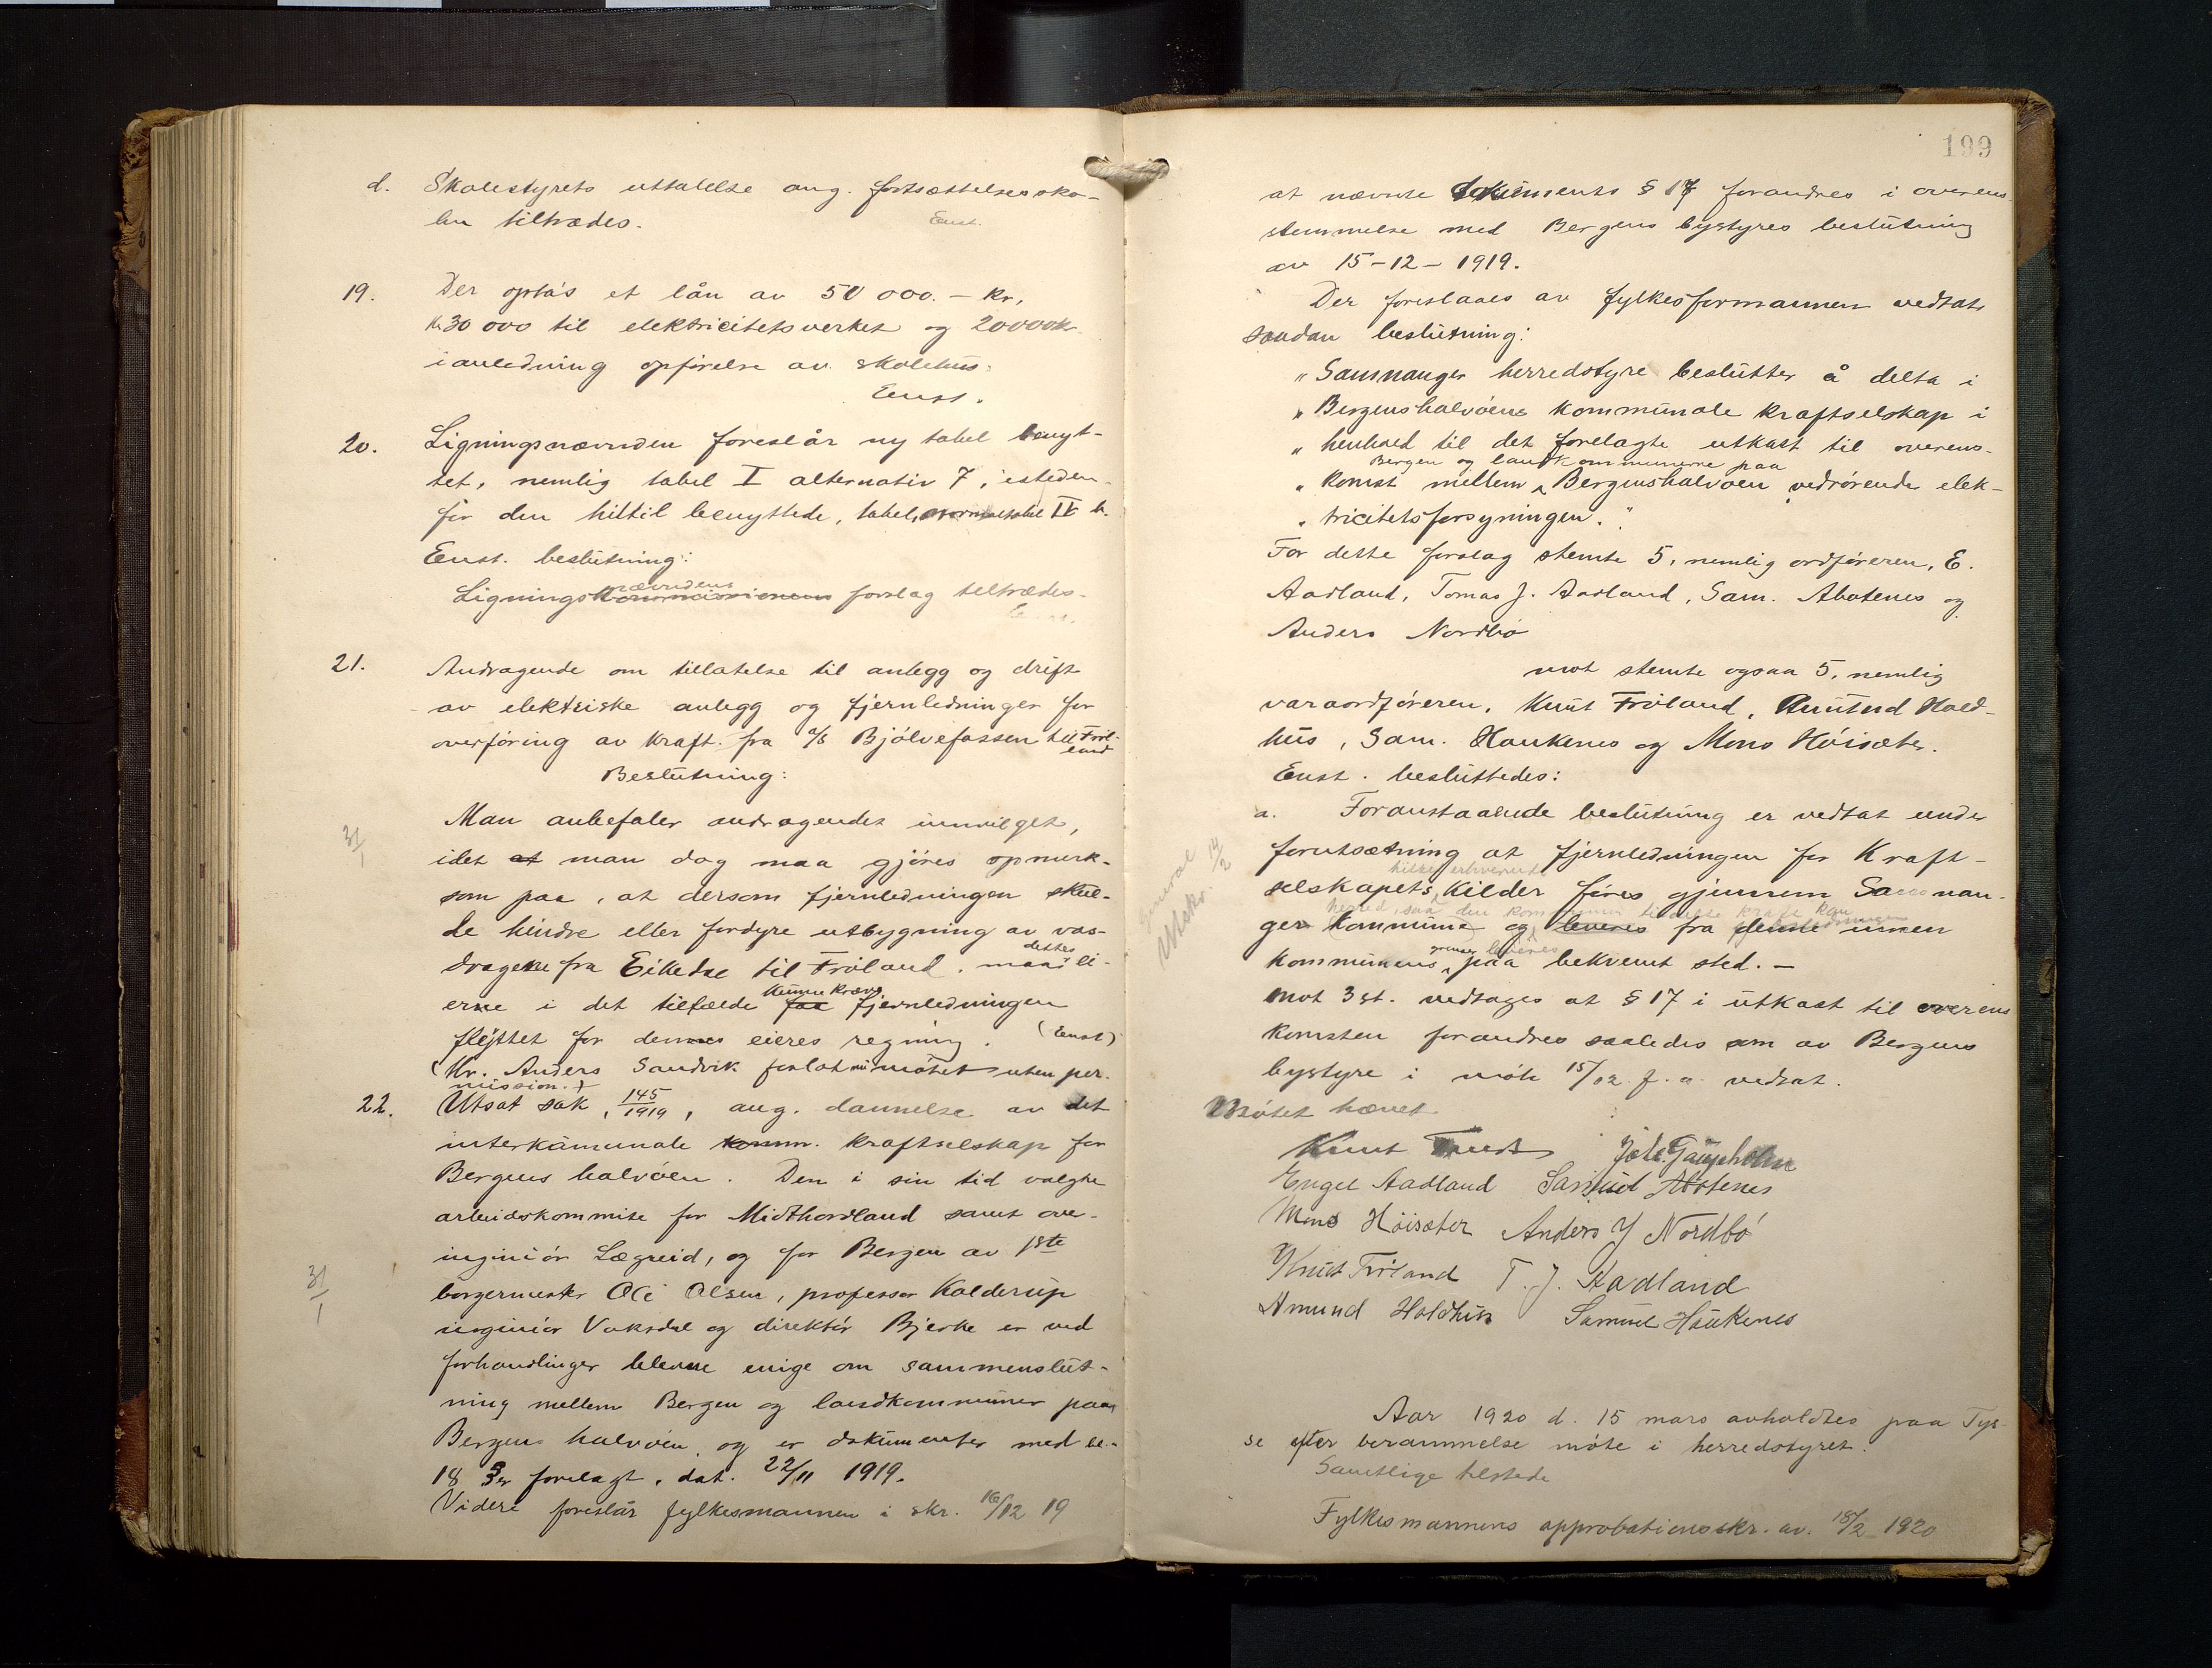 d. Skolestyrets uttalelse ang. fortsættelsessko-
len tiltrædes.
Enst.
19. Der optás et lån av 50 000.- kr,
kr 30 000 til elektricitetsverket og 20000 kr
i anledning opförelse av skolehus.
Enst.
20. Ligningsnævnden foreslår ny tabel benyt-
tet, nemlig tabel I alternativ 7, isteden-
for den hittil benyttede, tabel, normaltabel IV b.
Enst. beslutning:
nævndens
Lignings kommissionens forslag tiltrædes.
21. Andragende om tillatelse til anlegg og drift
av elektriske anlegg og fjernledninger for
overföring av kraft fra a/s Bjölvefossen til Fröl-
land
Beslutning:
31/1
Man anbefaler andragendet innvilget,
idet at man dog maa gjöres opmerk-
som paa, at dersom fjernledningen skul-
de hindre eller fordyre utbygning av vas-
dragene fra Eikedal til Fröland, maa dettes ei-
kunne kræve
erne i det tilfælde faa fjernledningen
flyttet for dennes eieres regning. (Enst)
(Hr. Anders Sandvik forlot nu mötet uten per-
mission.)
22. Utsat sak, 145/1919, ang. dannelse av det
interkommunale komm. kraftselskap for
Bergens halvöen. Den i sin tid valgte
arbeidskommite for Midthordland samt over-
ingeniör Lægreid, og for Bergen av 1ste
31/1
borgermester Ole Olsen, professor Kolderup
ingeniör Vaksdal og direktör Bjerke er ved
forhandlinger blevne enige om sammenslut-
ning mellem Bergen og landkommuner paa
Bergens halvöen, og er dokumenter med be-
18 §er forelagt, dat. 22/11 1919.
Videre foreslår fylkesmannen i skr. 16/12 19
199
at nævnte dokuments § 17 forandres i overens-
stemmelse med Bergens bystyres beslutning
av 15-12-1919.
Der foreslaaes av fylkesformannen vedtat
saadan beslutning:
"Samnanger herredstyre beslutter å delta i
" Bergenshalvöens kommunale kraftselskap i
" henhold til det forelagte utkast til overens-
Bergen og landkommunerne paa
" komst mellem Bergenshalvöen vedrörende elek-
" tricitetsforsyningen."
For dette forslag stemte 5, nemlig ordföreren, E.
Aadland, Tomas J. Aadland, Sam. Abotenes og
Anders Nordbö
mot stemte ogsaa 5, nemlig
varaordföreren, Knut Fröland, Amund Hold-
hus, Sam. Haukenes og Mons Höisæter.
Enst. besluttedes:
a. Foranstaaende beslutning er vedtat under
General
Utskr. 14/2
forutsætning at fjernledningen for Kraft-
hittil erhvervede
selskapets kilder föres gjennem Samnan-
herred, saa den kommunen tildelte kraft kan
ger kommune og leveres fra denne innen
grenser leveres
kommunens paa bekvemt sted. -
Mot 3 st. vedtages at § 17 i utkast til overens
komsten forandres saaledes som av Bergens
bystyre i möte 15/12 f.a. vedtat.
Mötet hævet
Knut Joh. Gaupholm
Engel Aadland Samuel Abotenes
Mons Höisæter Anders J Nordbö
Knut Fröland T. J. Aadland
Amund Holdhus Samuel Haukenes
Aar 1920 d. 15 mars avholdtes paa Tys-
se efter berammelse möte i herredstyret.
Samtlige tilstede
Fylkesmannens approbationsskr. av. 18/2 1920